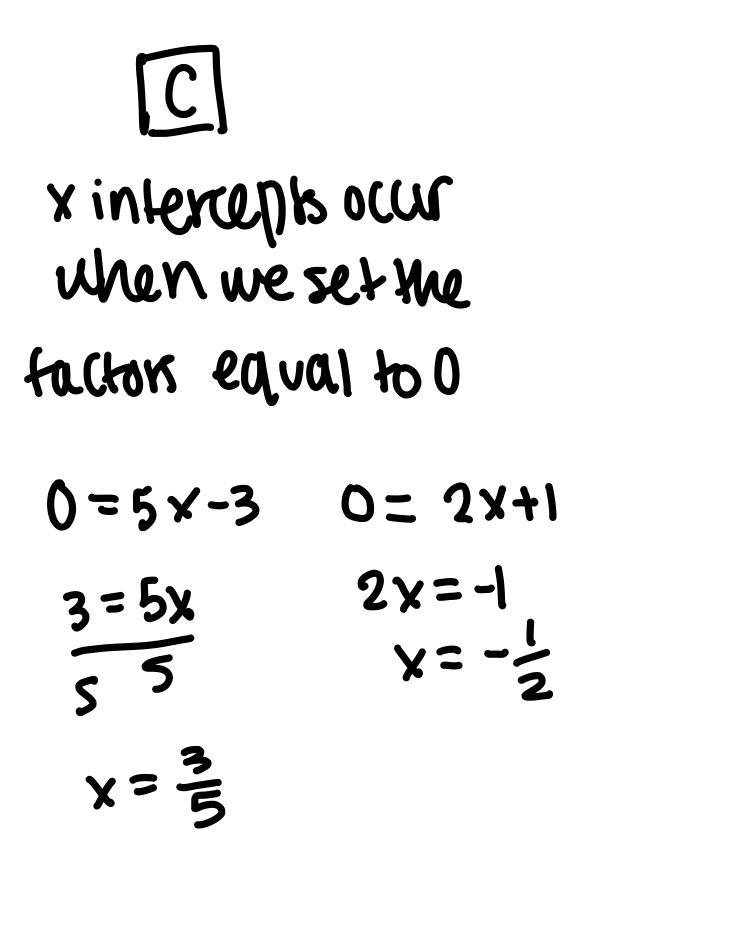 C
x intercepts occur
when we set the
factors equal to 0
0 = 5x - 3
3 = 5x
5 5
x = 3/5
0 = 2x + 1
2x = -1
x = -1/2